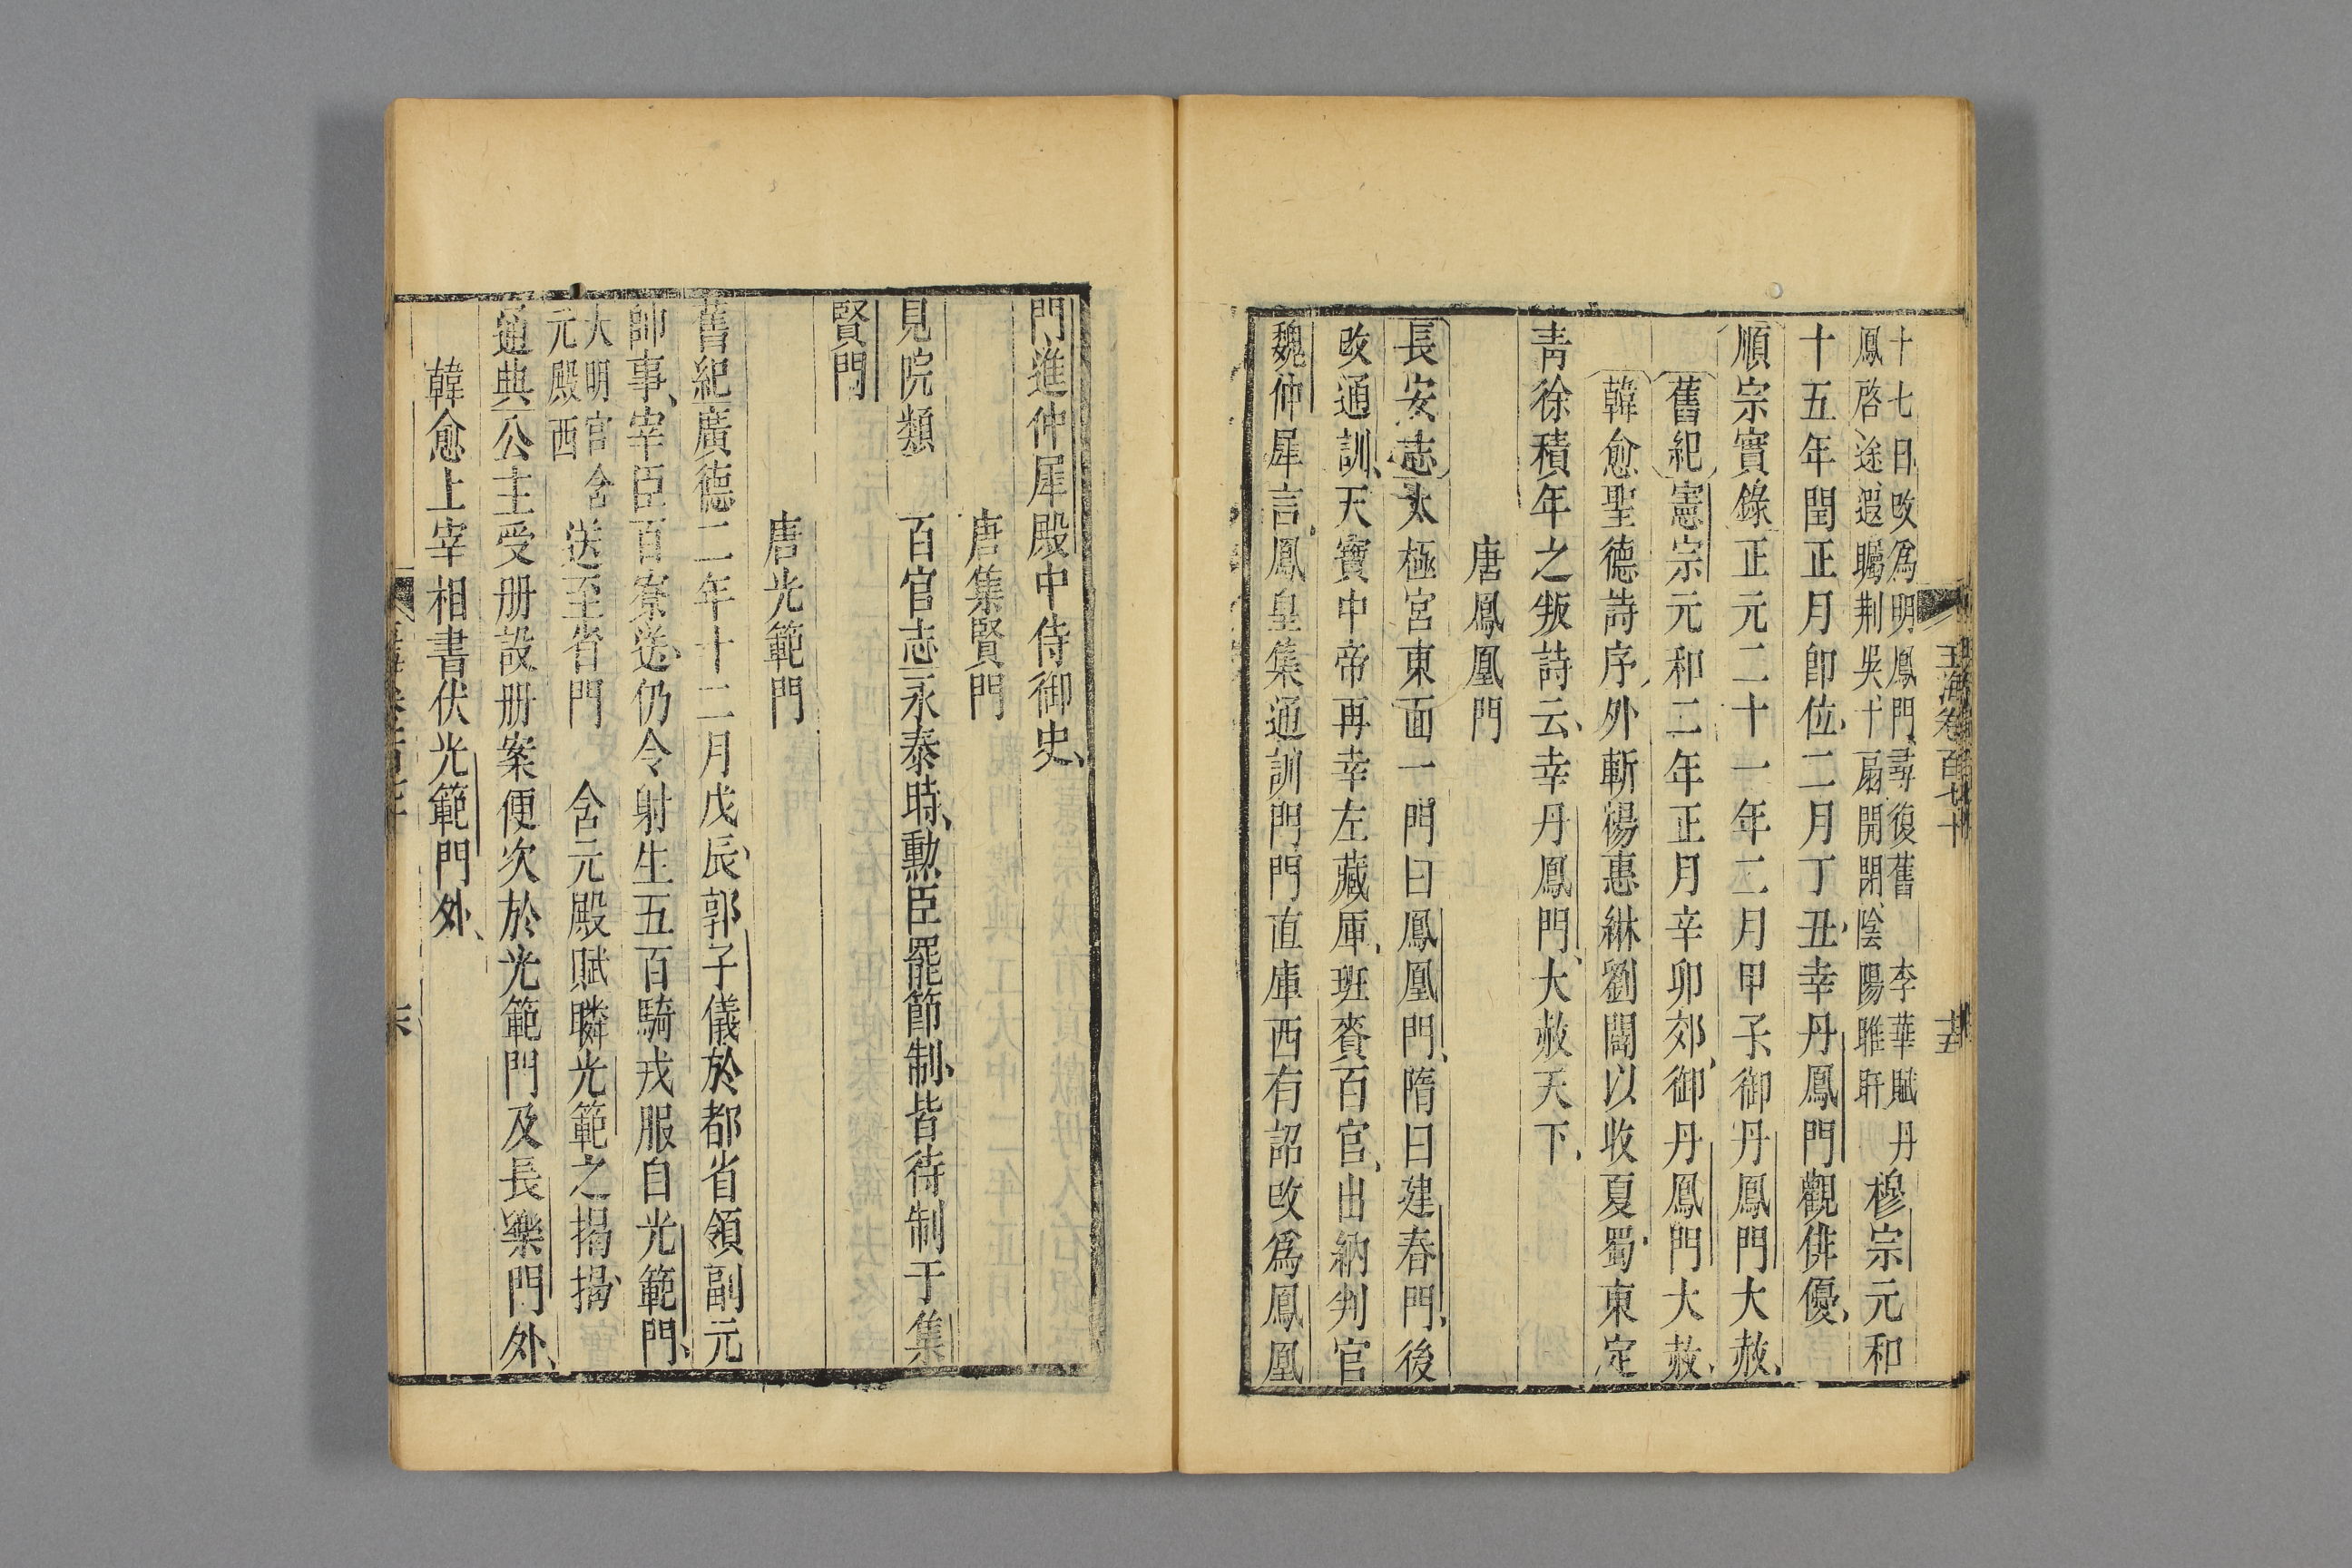 玉海卷百七十
十五
十七日改為明鳳門尋復舊 李華賦丹
鳳啓途遐矚荆吳十扇開閉陰陽睢盱
穆宗元和
十五年閏正月卽位二月丁丑幸丹鳳門觀俳優
順宗實錄正元二十一年二月甲子御丹鳳門大赦
舊紀憲宗元和二年正月辛卯郊御丹鳳門大赦
韓愈聖德詩序外斬楊惠綝劉闢以收夏蜀東定
青徐積年之叛詩云幸丹鳳門大赦天下
唐鳳凰門
長安志太極宮東面一門曰鳳凰門隋曰建春門後
改通訓天寶中帝再幸左藏庫班賚百官出納判官
魏仲犀言鳳皇集通訓門門直庫西有詔改為鳳凰
門進仲犀殿中侍御史
唐集賢門
見院類 百官志永泰時勳臣罷節制皆待制于集
賢門
唐光範門
舊紀廣德二年十二月戊辰郭子儀於都省領副元
帥事宰臣百寮送仍令射生五百騎戎服自光範門
大明宮含
元殿西
送至省門 含元殿賦瞵光範之揭揭
通典公主受册設册案便次於光範門及長樂門外
韓愈上宰相書伏光範門外